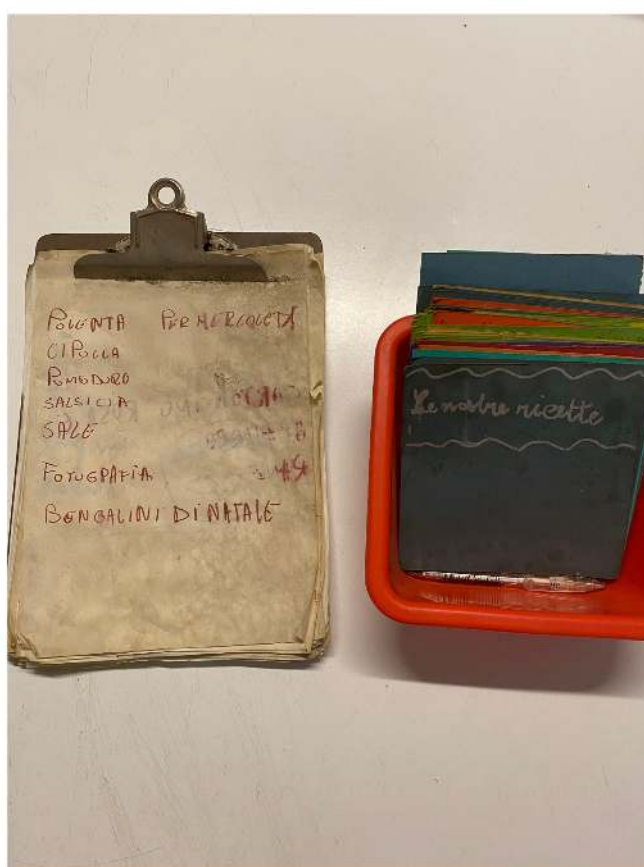 POLENTA PER MERCOLETÀ
CIPOLLA
POMODORO
SALSICIA
SALE
FOTOGRAFIA
BENGALINI DI NATALE
Le nostre ricette